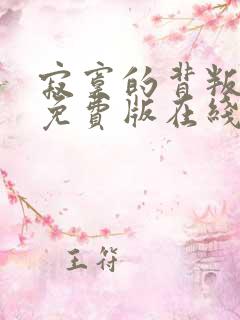 寂寞的背叛
免費版在綫
王符